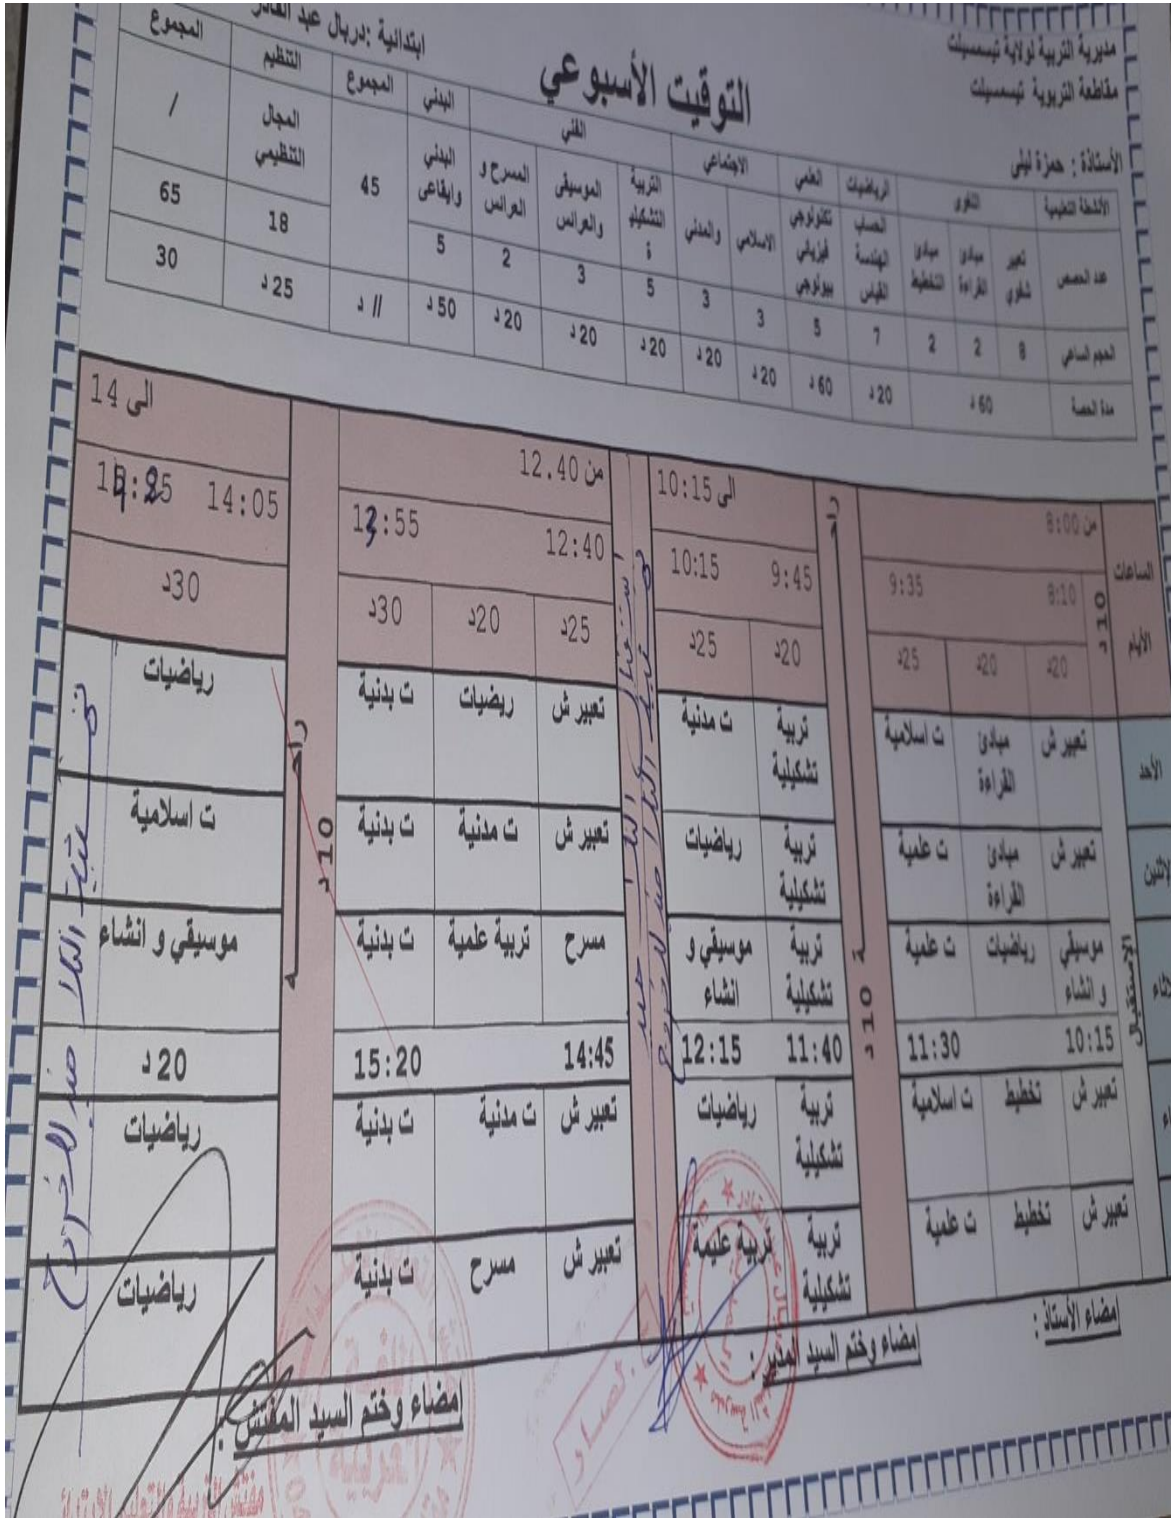 مديرية التربية لولاية تيسمسيلت
مقاطعة التربوية تيسمسيلت
ابتدائية :دربال عبد القادر
التوقيت الأسبوعي
الأستاذة : حمزة ليلى
الأنشطة التعليمية اللغوي الرياضيات العلمي الاجتماعي الفني البدني المجموع التنظيم المجموع
عدد الحصص تعبير شفوي مبادئ القراءة مبادئ التخطيط الحساب الهندسة القياس تكنولوجي فيزيائي بيولوجي الاسلامي والمدني التربية التشكيلية الموسيقى والعرائس المسرح و العرائس البدني وايقاعى 45 المجال التنظيمي /
الحجم الساعي 8 2 2 7 5 3 3 5 3 2 5 18 65
مدة الحصة 60 د 20 د 60 د 20 د 20 د 20 د 20 د 20 د 50 د // د 25 د 30
الساعات من 8:00 الى 10:15 من 12.40 الى 14
8:10 9:35 9:45 10:15 12:40 13:55 14:05
الأيام 10د 20د 20د 25د 20د 25د 25د 20د 30د 30د
الأحد تعبير ش مبادئ القراءة ت اسلامية تربية تشكيلية ت مدنية تعبير ش ريضيات ت بدنية رياضيات
تعبير ش مبادئ القراءة ت علمية تربية تشكيلية رياضيات تعبير ش ت مدنية ت بدنية ت اسلامية
موسيقي و انشاء رياضيات ت علمية تربية تشكيلية موسيقي و انشاء مسرح تربية علمية ت بدنية موسيقي و انشاء
10:15 11:30 11:40 12:15 14:45 15:20 20 د
تعبير ش تخطيط ت اسلامية تربية تشكيلية رياضيات تعبير ش ت مدنية ت بدنية رياضيات
تعبير ش تخطيط ت علمية تربية تشكيلية تربية عليمة تعبير ش مسرح ت بدنية رياضيات
الاستقبال
راحة 10 د
راحة 10 د
امضاء الأستاذ :
امضاء وختم السيد المدير :
امضاء وختم السيد المفتش :